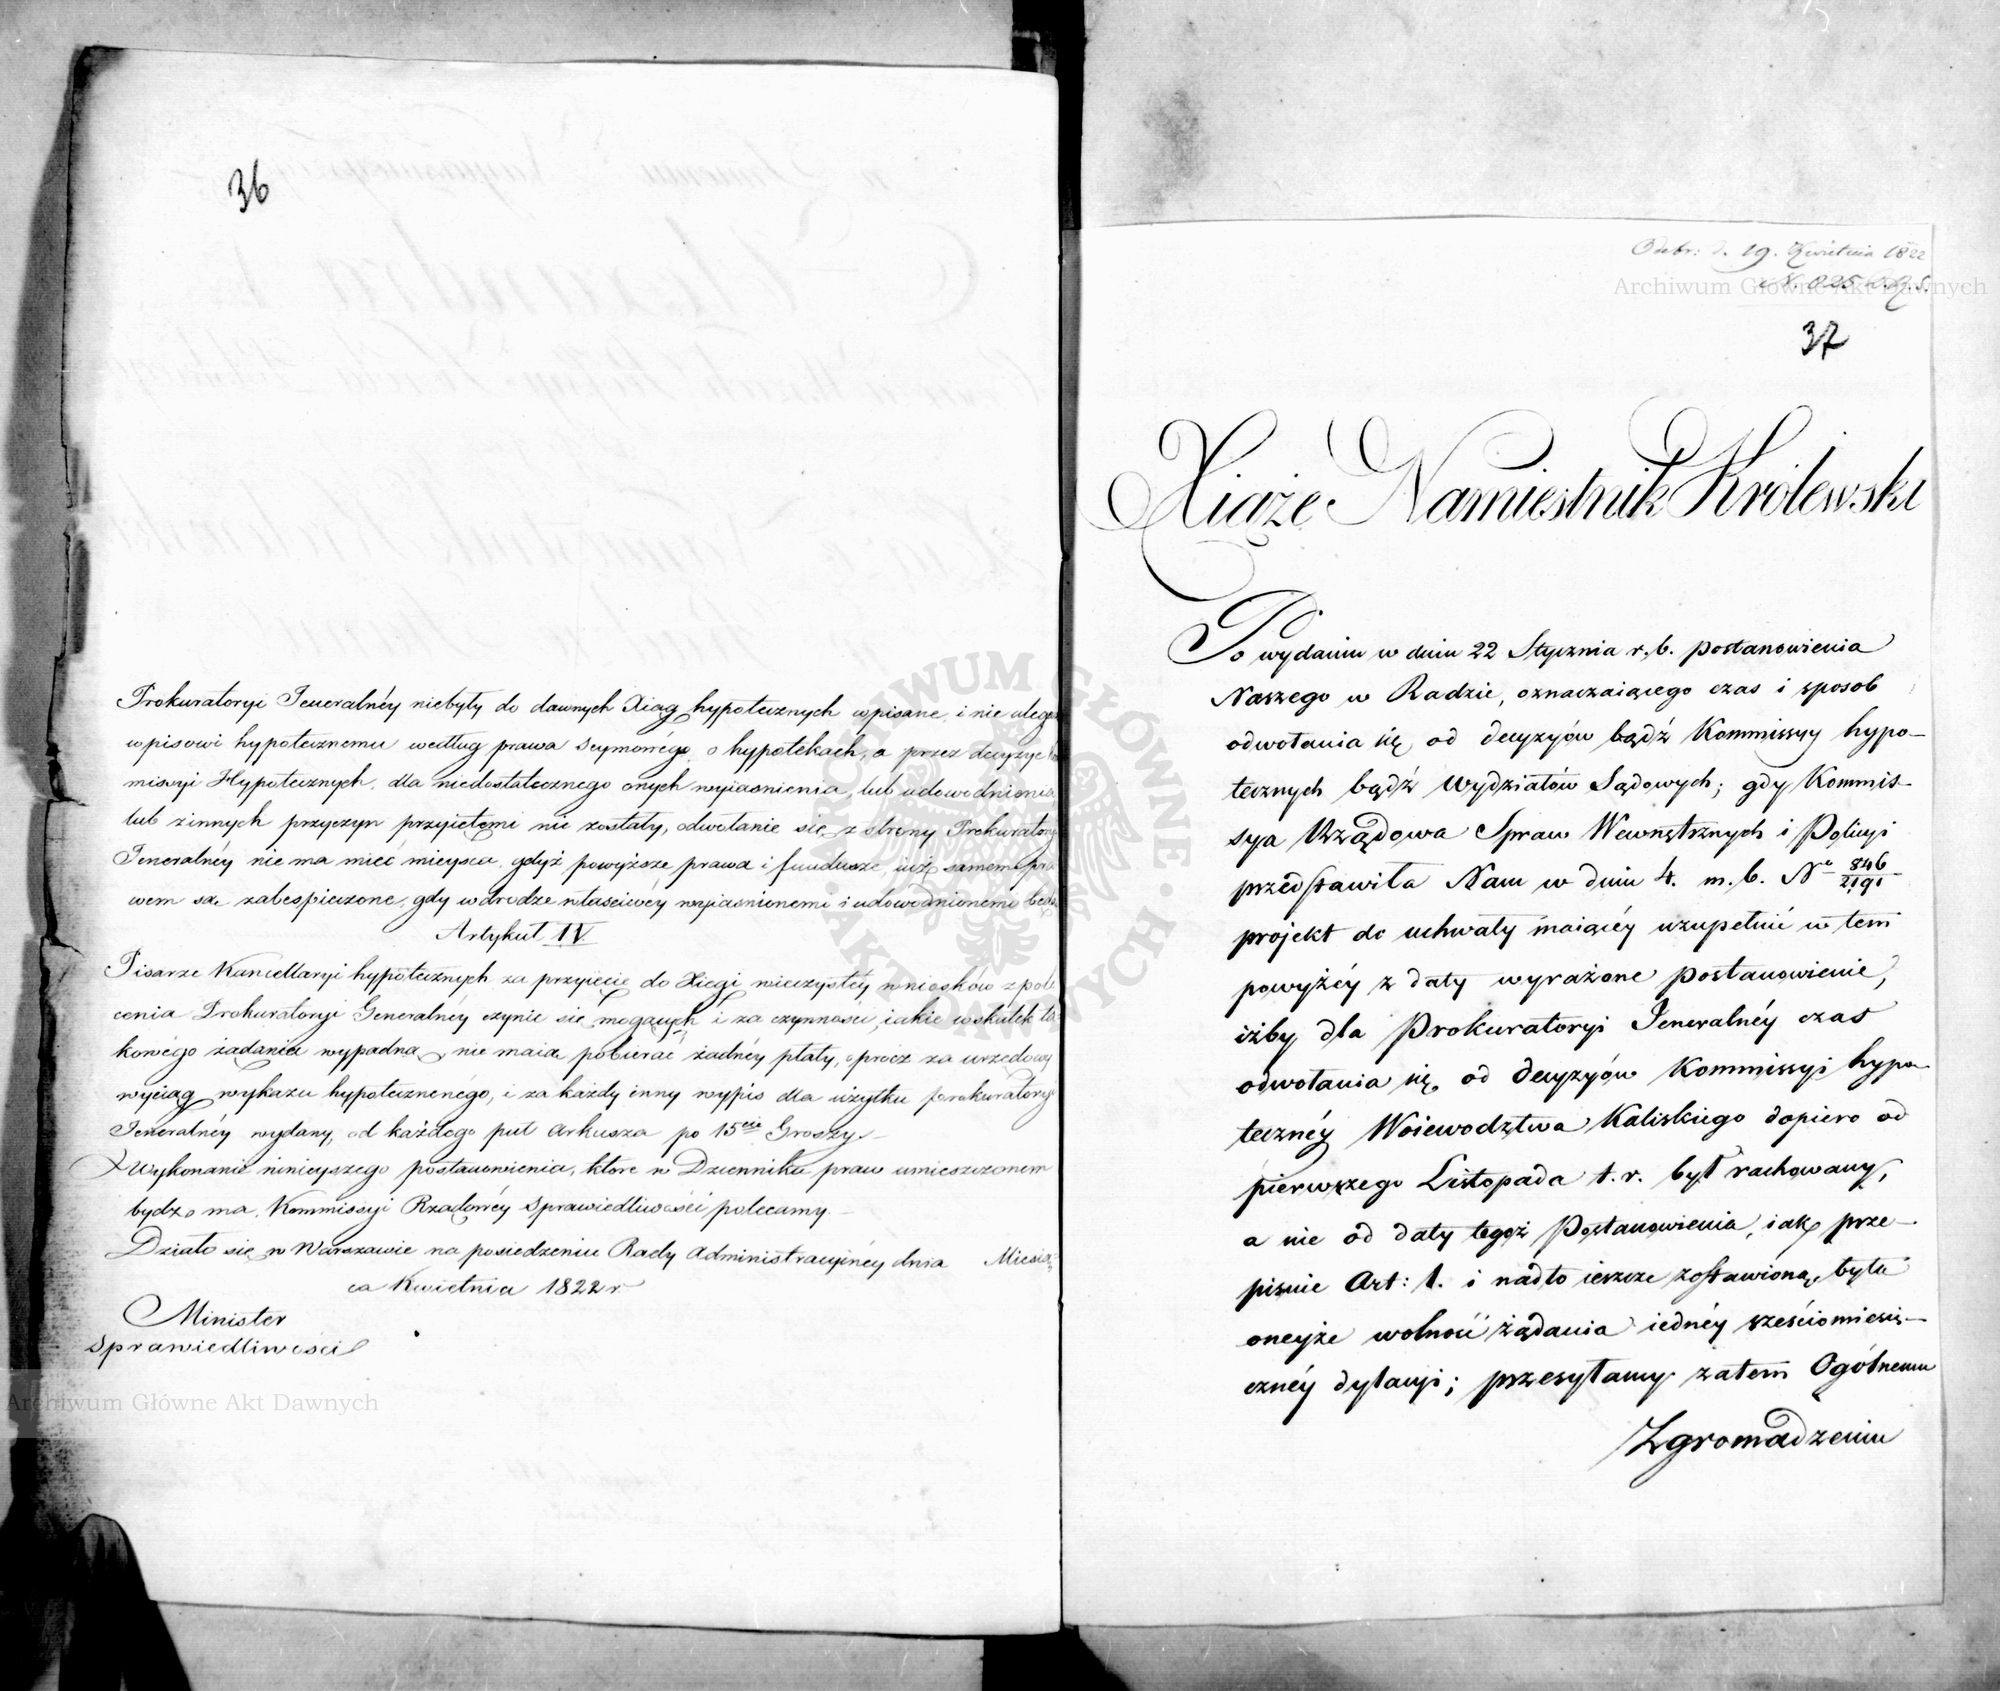 36
Prokuratoryi Jeneralnéy niebyły do dawnych Xiąg hypotecznych wpisane, i nie uległy
wpisowi hypotecznemu według prawa Seymowégo o hypotekach, a przez decyzye
missyi Hypotecznych, dla niedostatecznego onych wyiasnienia, lub udowodnienia,
lub zinnych przyczyn przyiętemi nie zostały, odwołanie się z strony Prokuratoryi
Jeneralnéy nie ma mieć mieysca, gdyż powyższe prawa i fundusze iuż samem pra
wem są zabespieczone, gdy wdrodze właściwéy wyiasnionemi i udowodnionemi będą
Artykuł IV
Pisarze Kancellaryi hypotecznych za przyięcie do Xięgi wieczystéy wniosków z pole
cenia Prokuratoryi Generalnéy czynić się mogących i za czynności, iakie wskutek ta
kowégo żądania wypadną, nie maią pobierać żadnéy płaty, oprócz za urzędowy
wyciąg wykazu hypotecznenégo, i za każdy inny wypis dla użytku prokuratoryi
Jeneralnéy wydany, od każdego puł arkusza po 15cie Groszy.
Wykonanie ninieyszego postanowienia, które w Dzienniku praw umieszczonem
bydź ma, Kommissyi Rządowéy Sprawiedliwości polecamy.
Działo się w Warszawie na posiedzeniu Rady Administracyinéy dnia Miesią
ca Kwietnia 1822 r
Minister
Sprawiedliwości
Archiwum Główne Akt Dawnych
Odebr: d. 19. Kwietnia 1822
Archiwum Główne Akt Dawnych
37
Xiąże Namiestnik Królewski
Po wydaniu w dniu 22 Stycznia r. b. postanowienia
Naszego w Radzie, oznaczaiącego czas i sposób
odwołania się od decyzyów bądź Kommissyy hypo-
tecznych bądź Wydziałów Sądowych; gdy Kommis-
sya Rządowa Spraw Wewnętrznych i Policyi
przedstawiła Nam w dniu 4. m. b. No 846/2191
projekt do uchwały maiącéy uzupełnić w tem
powyżéy z daty wyrażone postanowienie,
iżby dla Prokuratoryi Jeneralnéy czas
odwołania się od decyzyów Kommissyi hypo-
tecznéy Woiewodztwa Kaliskiego dopiero od
pierwszego Listopada t. r. był rachowany,
a nie od daty tegoż Postanowienia, iak prze-
pisuie Art: 1. i nadto ieszcze zostawioną była
oneyże wolność żądania iednéy sześciomiesię-
cznéy dylacyi; przesyłamy zatem Ogólnemu
Zgromadzeniu
ARCHIWUM GŁÓWNE AKT DAWNYCH